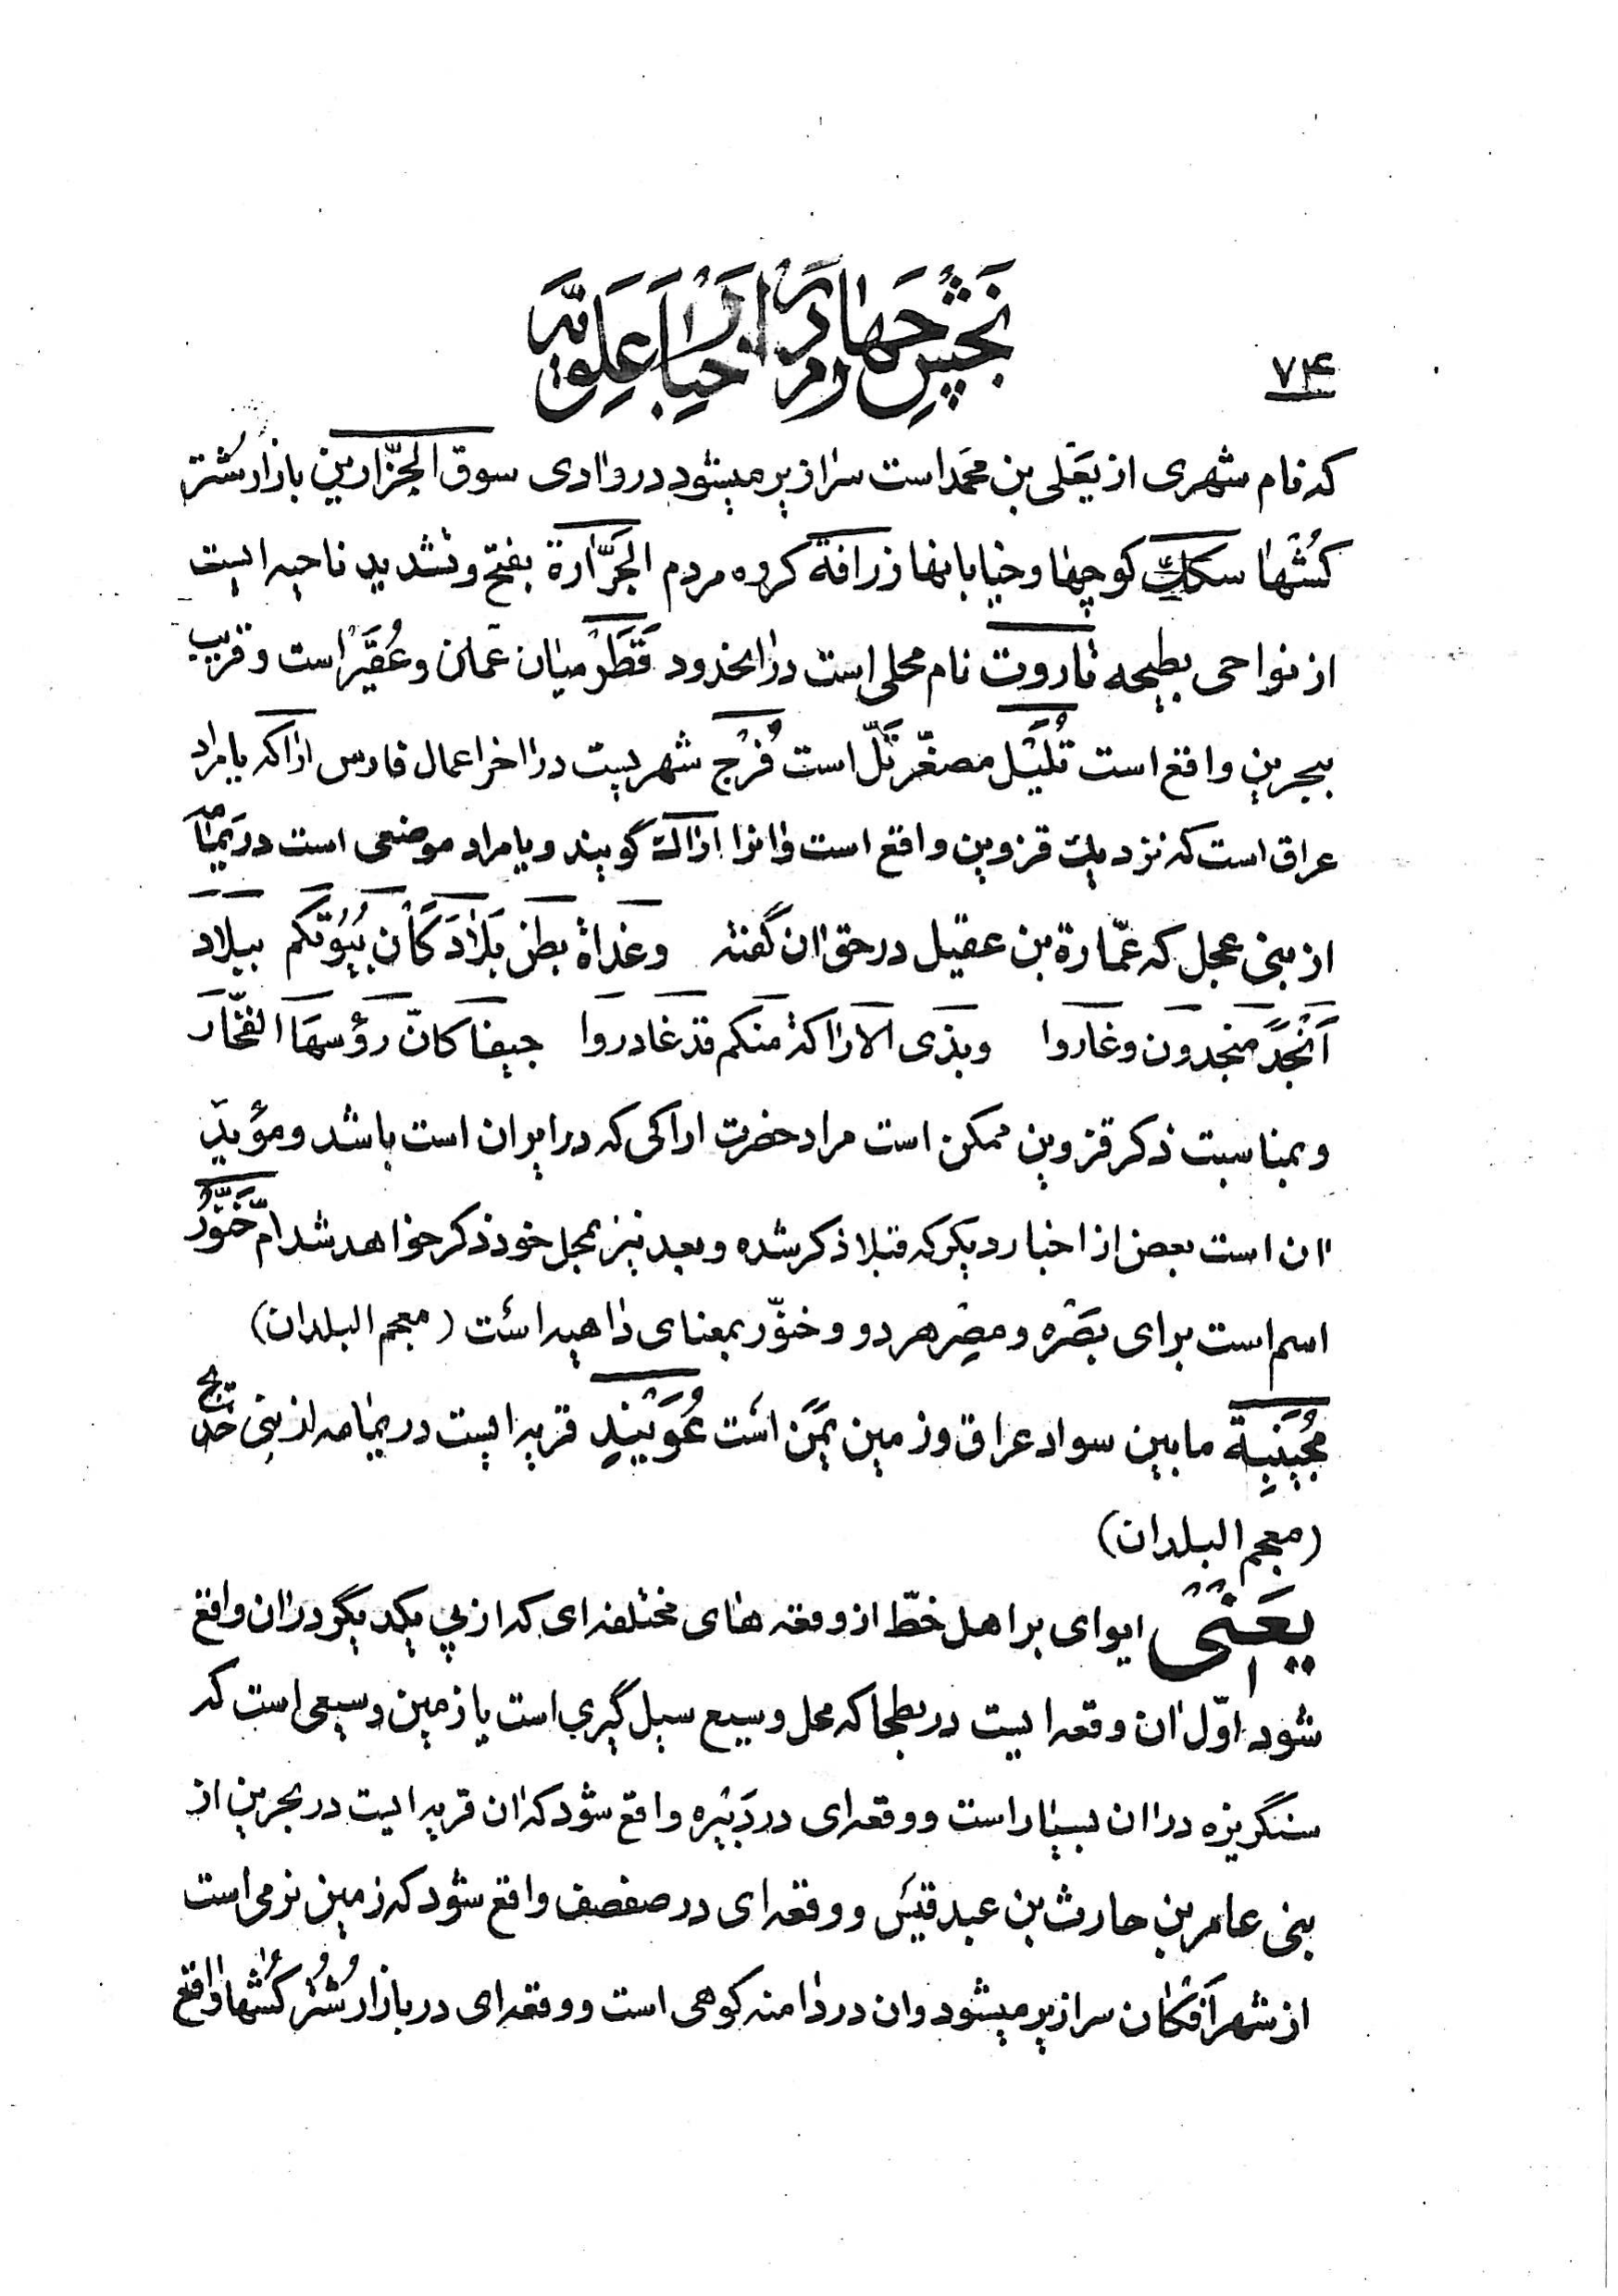 بَخْشِ چَهارُم دَر اَخبارِ عَلَویَّه
۷۴
که نام شهری از یَعْلی بن محمّد است سرازیر میشود در وادی سوق الجزّارین بازار شتر
کُشْها سکك کوچها و خیابانها زرافة کروه مردم الجَرَّارة بفتح و تشدید ناحیه ایست
از نواحی بطیحه تاروت نام محلی است در الحدود قَطَر میان عمان و عُقَیْر است و قریب
ببحرین واقع است تُلَیْل مصغّر تَلّ است فُرْج شهریست در اخر اعمال فارس اراکه یا مراد
عراق است که نزدیك قزوین واقع است و انرا اراکه گویند و یا مراد موضعی است در یَمٰامَه
از بنی عجل که عمّارة بن عقیل در حق ان گفته وغداة بطن بَلاد کَان بُیُوتکم ببلاد
اَنْجَد منجدون وغاروا وبذی الاراکة منکم قد غادروا جیفا کانّ رؤسهَا الفخّار
و بمناسبت ذکر قزوین ممکن است مراد حضرت اراکی که در ایران است باشد و مؤید
ان است بعض از اخبار دیکر که قبلا ذکر شده و بعد نیز بمحل خود ذکر خواهد شد امّ خَنَّوُر
اسم است برای بَصْره و مِصْر هر دو و خنوّر بمعنای داهیه است (معجم البلدان)
مُجَیْنِبة مابین سواد عراق و زمین یَمَن است عُوَیْنِد قریه ایست در یمامه از بنی خدیج
(معجم البلدان)
یَعْنی ایوای بر اهل خطّ از وقعه های مختلفه ای که از پی یکدیگر در ان واقع
شود اوّل ان وقعه ایست در بطحا که محل وسیع سیل گیری است یا زمین وسیعی است که
سنگریزه در ان بسیار است و وقعه ای در دَبیْره واقع شود که ان قریه ایست در بحرین از
بنی عامر بن حارث بن عبد قیس و وقعه ای در صفصف واقع شود که زمین نرمی است
از شهر اَفکان سرازیر میشود و ان در دامنه کوهی است و وقعه ای در بازار شُتُر کُشْها واقع